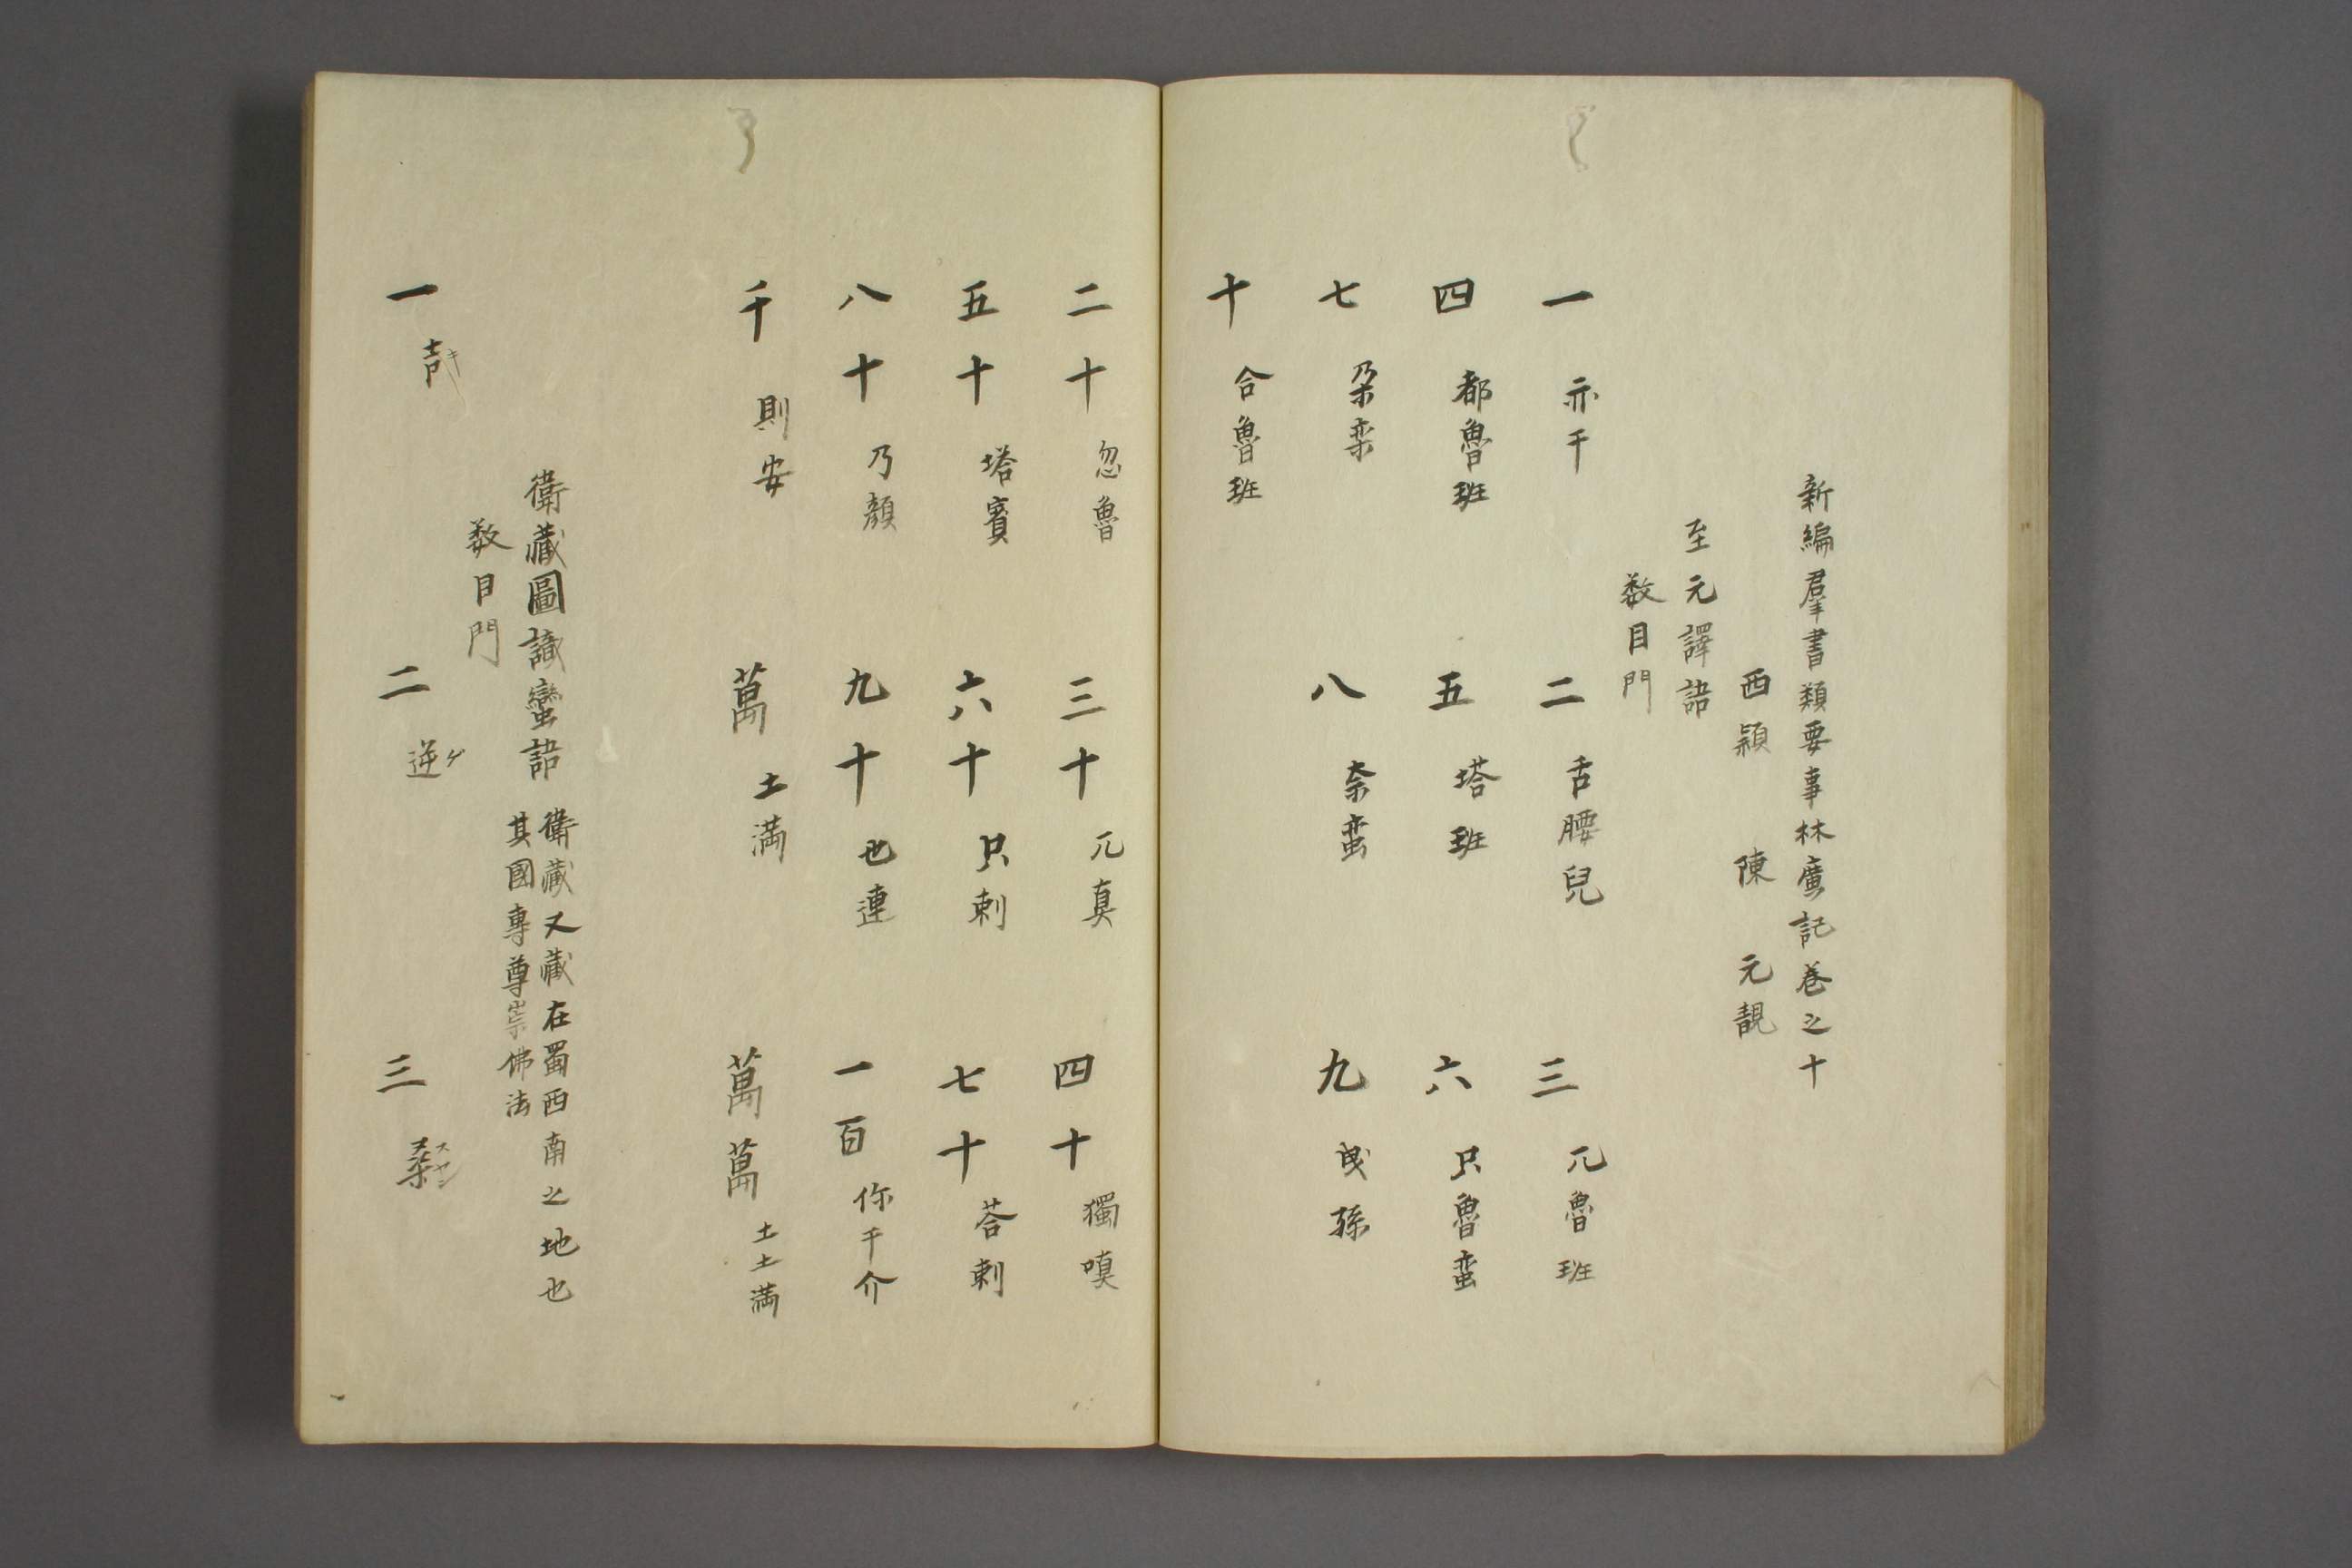 新編羣書類要事林廣記卷之十
西潁 陳 元靚
至元譯語
数目門
一 亦千 二 舌腰兒 三 兀魯班
四 都魯班 五 塔班 六 只魯蛮
七 朶栾 八 奈蛮 九 曳孫
十 合魯班
二十 忽魯 三十 兀真 四十 獨嗼
五十 塔賓 六十 只剌 七十 荅剌
八十 乃顏 九十 也連 一百 你千介
千 則安 萬 土満 萬萬 土土満
衛藏圖識蠻語 衛藏又藏在蜀西南之地也
其國專尊崇佛法
数目門
一 二 逆 ゲ 三